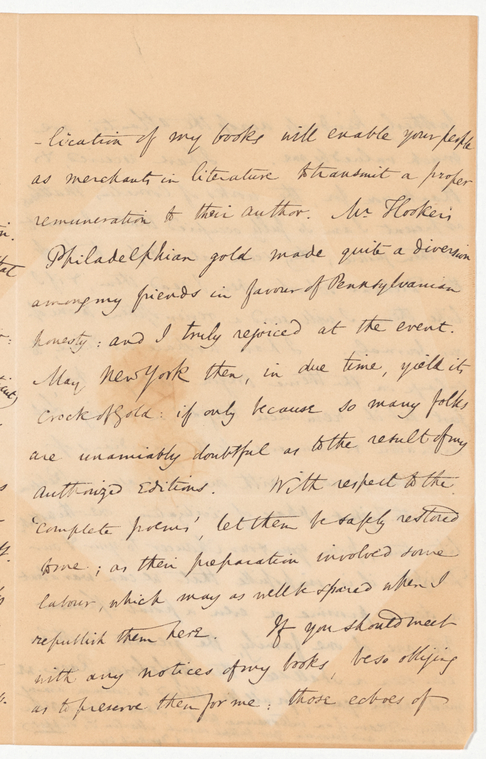 -lication of my books will enable your people
as merchants in literature to transmit a proper
remuneration to their author. Mr Hooker's
Philadelphian gold made quite a diversion
among my friends in favour of Pennsylvanian
honesty: and I truly rejoiced at the event.
May New York then, in due time, yield its
Crock of Gold: if only because so many folks
are unamiably doubtful as to the result of my
authorized Editions. With respect to the
'complete poems', let them be safely restored
to me; as their preparation involved some
labour, which may as well be spared when I
republish them here. If you should meet
with any notices of my books, be so obliging
as to preserve them for me: those echoes of